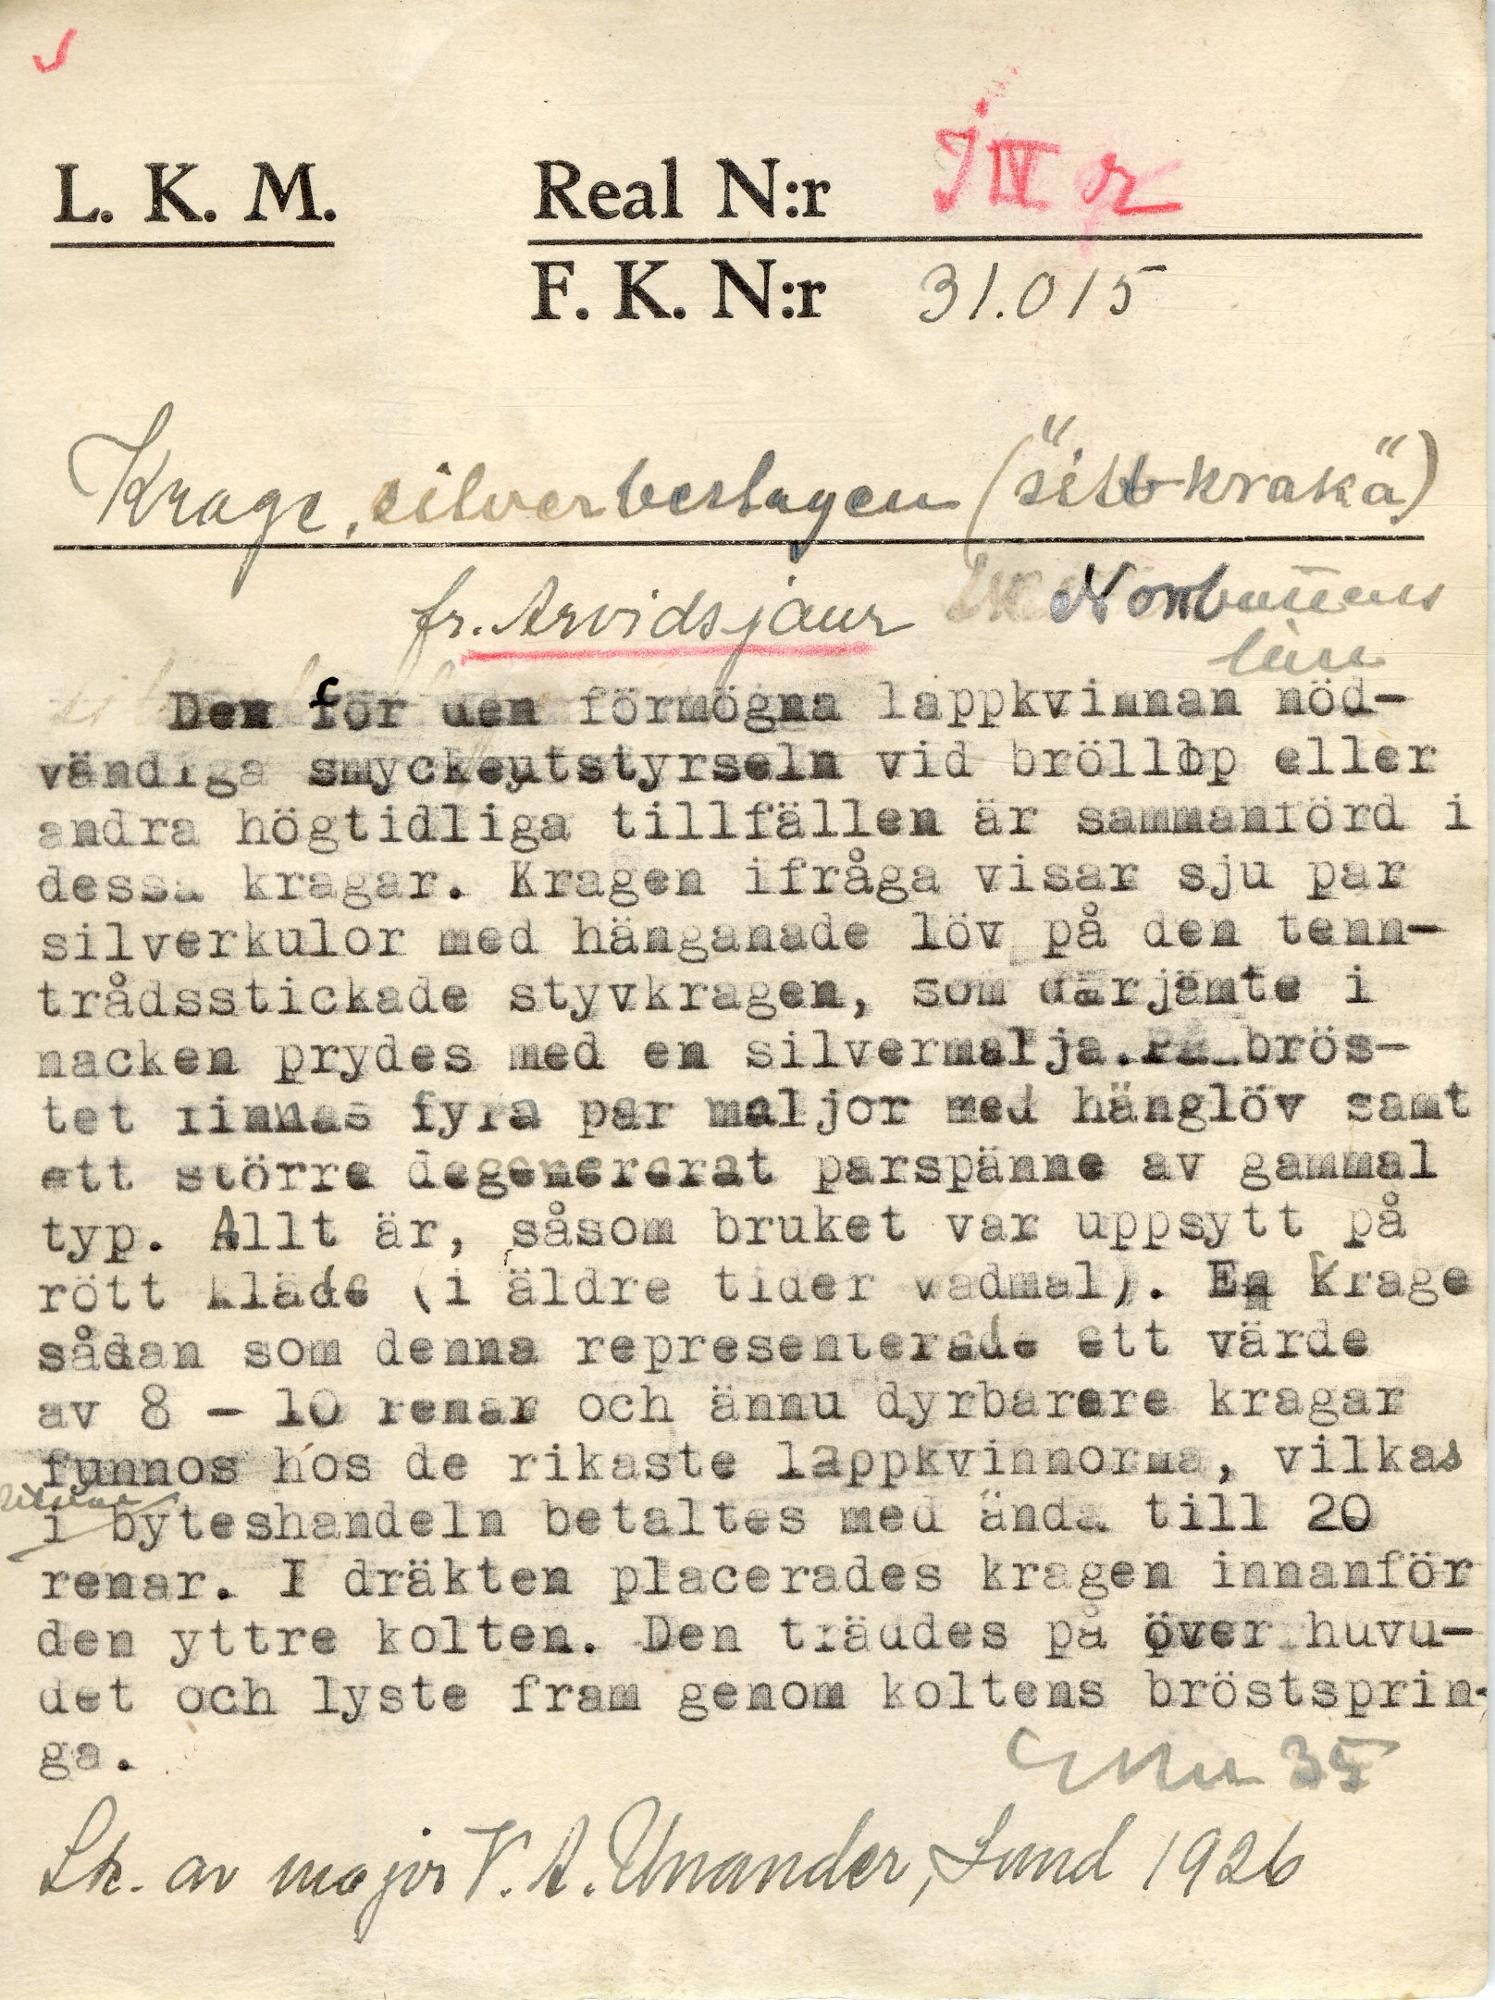 L. K. M.
Real N:r J IV r
F. K. N:r 31.015
Krage, silverbeslagen ("silb-krakä")
fr. Arvidsjaur Norrbottens
län
Den för den förmögna lappkvinnan nöd-
vändiga smyckeutstyrseln vid bröllop eller
andra högtidliga tillfällen är sammanförd i
dessa kragar. Kragen ifråga visar sju par
silverkulor med hänganade löv på den tenn-
trådsstickade styvkragen, som därjämte i
nacken prydes med en silvermalja. På brös-
tet finnas fyra par maljor med hänglöv samt
ett större degenererat parspänne av gammal
typ. Allt är, såsom bruket var uppsytt på
rött kläde (i äldre tider vadmal). En krage
sådan som denna representerade ett värde
av 8 - 10 renar och ännu dyrbarare kragar
funnos hos de rikaste lappkvinnorna, vilkas
i byteshandeln betaltes med ända till 20
renar. I dräkten placerades kragen innanför
den yttre kolten. Den träddes på över huvu-
det och lyste fram genom koltens bröstsprin-
ga.
35
Sk. av major V. A. Unander, Lund 1926